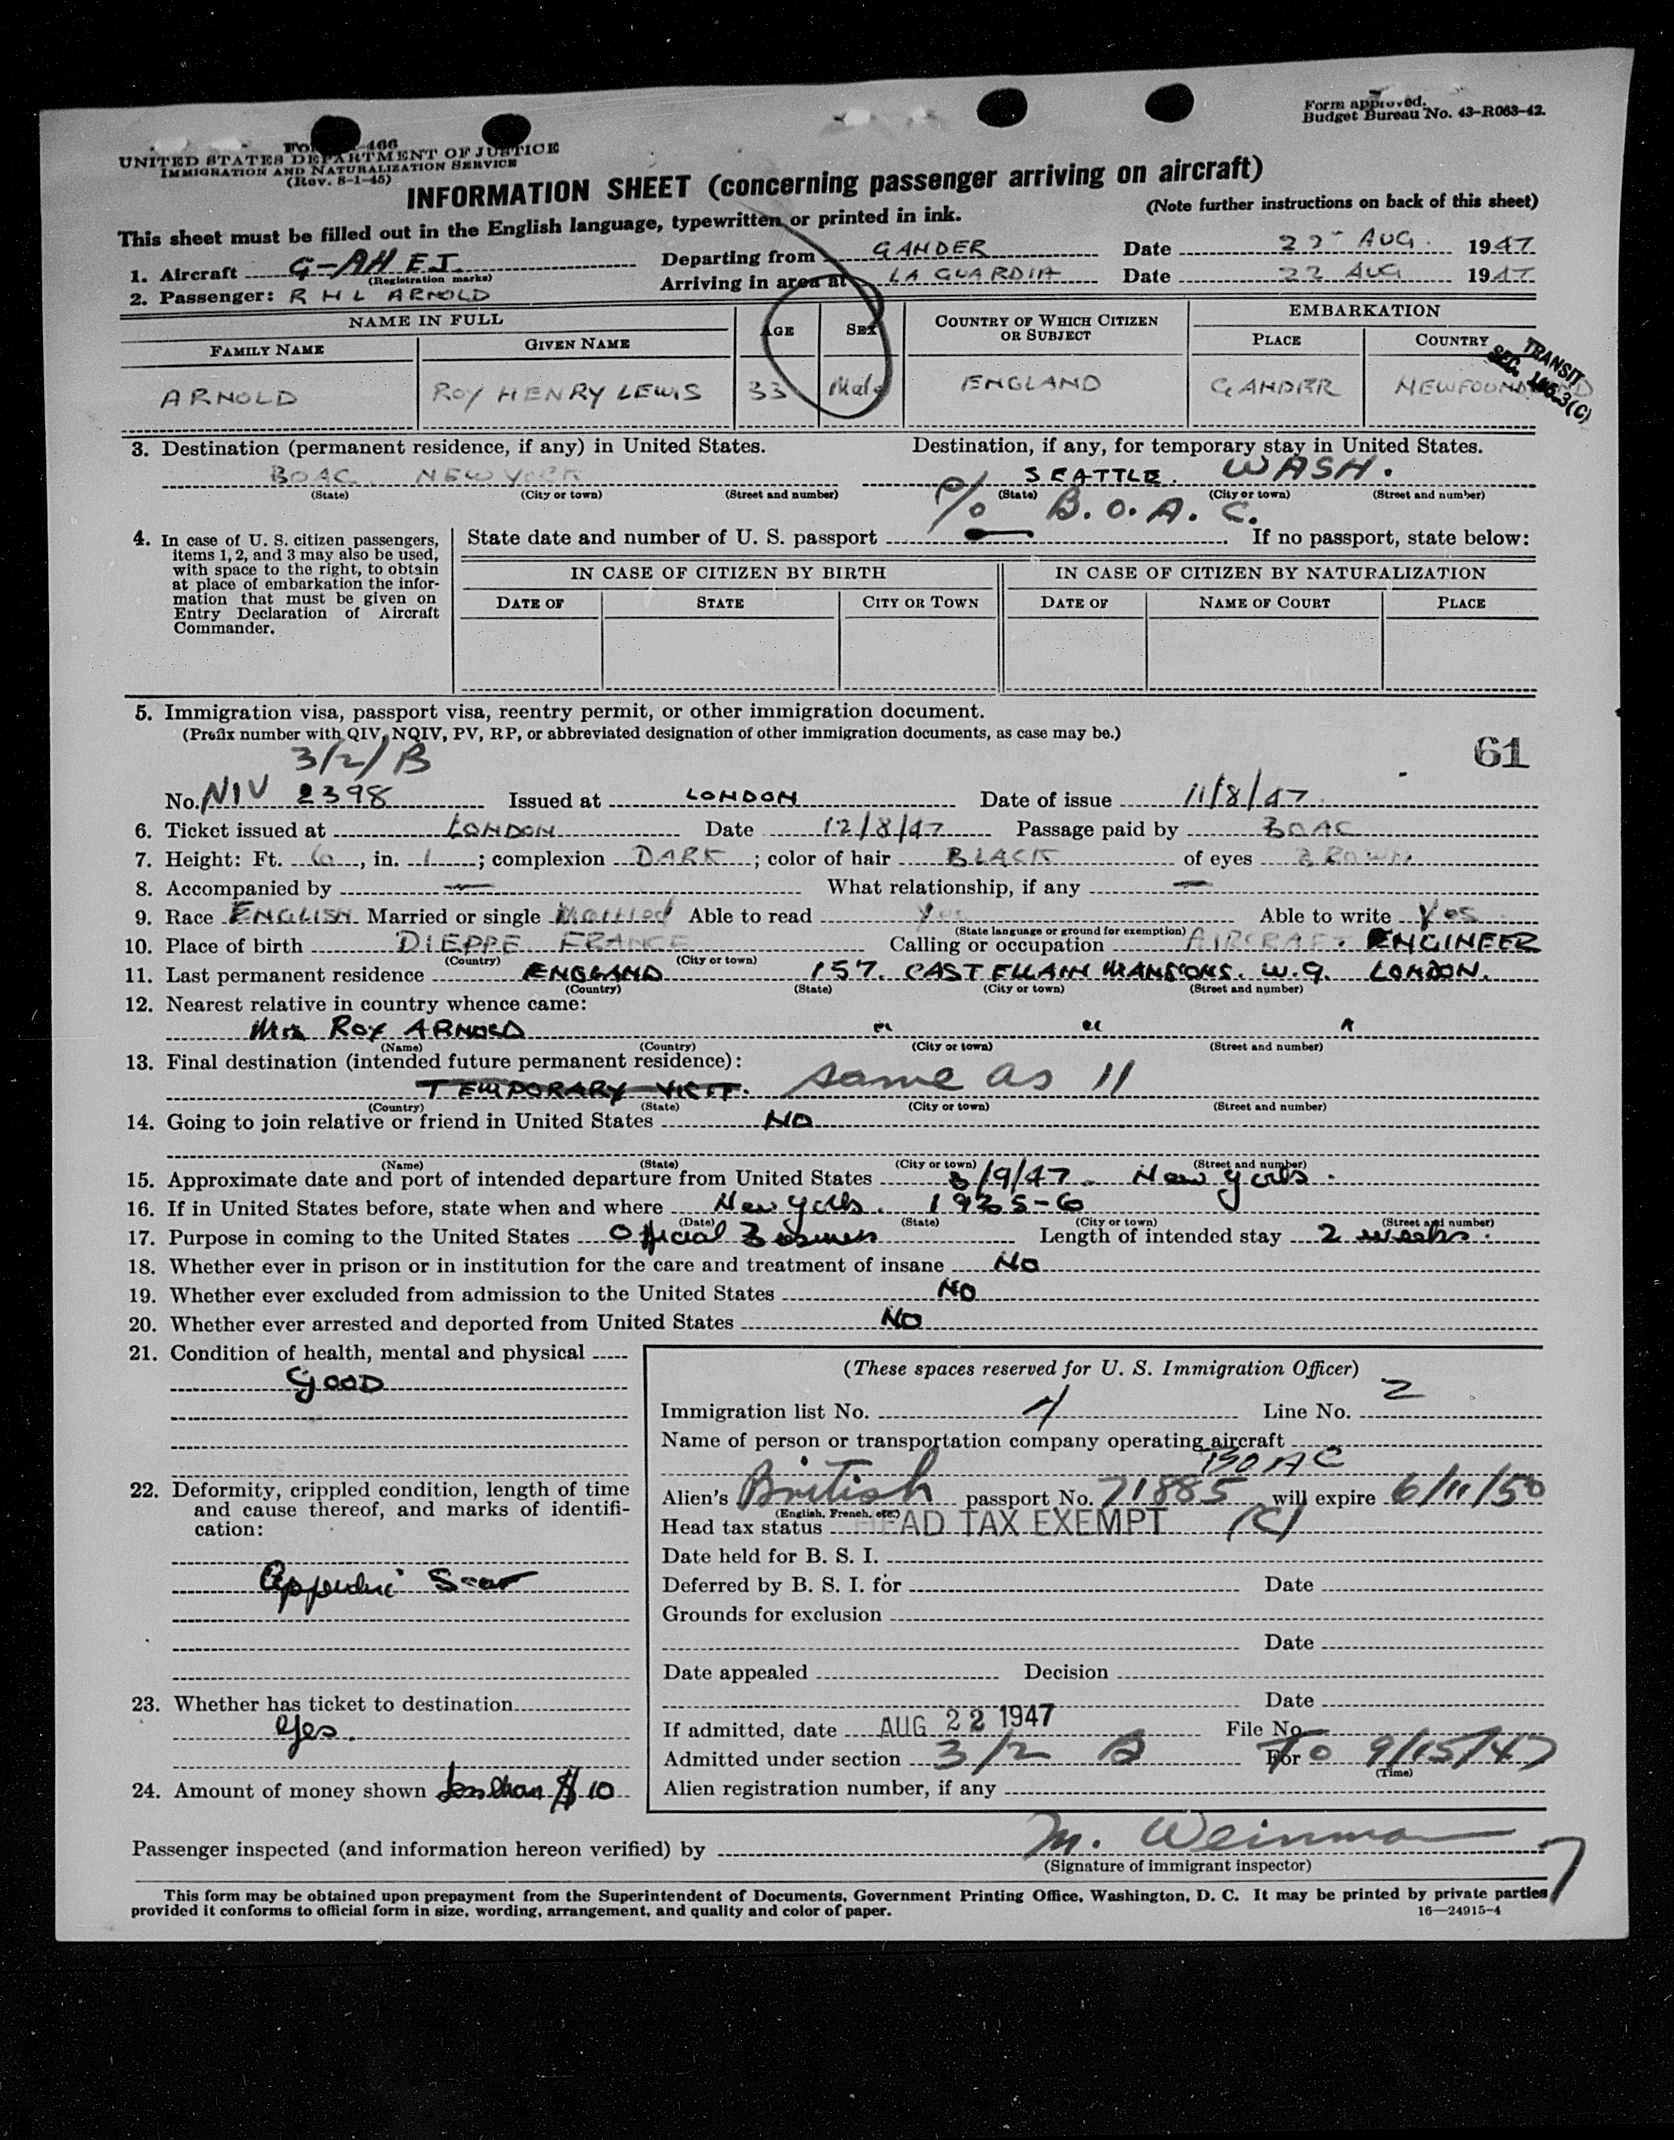 Form approved.
Budget Bureau No. 43-R063-42.
466
UNITED STATES DEPARTMENT OF JUSTICE
IMMIGRATION AND NATURALIZATION SERVICE
(Rev. 8-1-45)
INFORMATION SHEET (concerning passenger arriving on aircraft)
(Note further instructions on back of this sheet)
This sheet must be filled out in the English language, typewritten or printed in ink.
1. Aircraft G-AHEJ Departing from GANDER Date 22 AUG. 1947
(Registration marks)
2. Passenger: R H L ARNOLD Arriving in area at LA GUARDIA Date 22 AUG 1947
NAME IN FULL AGE SEX COUNTRY OF WHICH CITIZEN OR SUBJECT EMBARKATION
FAMILY NAME GIVEN NAME PLACE COUNTRY
TRANSIT
SEC. 3(C)
ARNOLD ROY HENRY LEWIS 33 Male ENGLAND GANDER NEWFOUNDLAND
3. Destination (permanent residence, if any) in United States. Destination, if any, for temporary stay in United States.
BOAC NEW YORK SEATTLE. WASH.
(State) (City or town) (Street and number) (State) (City or town) (Street and number)
% B.O.A.C.
4. In case of U. S. citizen passengers, items 1, 2, and 3 may also be used, with space to the right, to obtain at place of embarkation the information that must be given on Entry Declaration of Aircraft Commander.
State date and number of U. S. passport If no passport, state below:
IN CASE OF CITIZEN BY BIRTH IN CASE OF CITIZEN BY NATURALIZATION
DATE OF STATE CITY OR TOWN DATE OF NAME OF COURT PLACE
5. Immigration visa, passport visa, reentry permit, or other immigration document.
(Prefix number with QIV, NQIV, PV, RP, or abbreviated designation of other immigration documents, as case may be.)
3/2/B 61
No. NIV 2398 Issued at LONDON Date of issue 11/8/47
6. Ticket issued at LONDON Date 12/8/47 Passage paid by BOAC
7. Height: Ft. 6, in. 1; complexion DARK; color of hair BLACK of eyes BROWN
8. Accompanied by — What relationship, if any —
9. Race ENGLISH Married or single Married Able to read Yes Able to write Yes
(State language or ground for exemption)
10. Place of birth DIEPPE FRANCE Calling or occupation AIRCRAFT ENGINEER
(Country) (City or town)
11. Last permanent residence ENGLAND 157. CASTELLAIN MANSIONS. W.9. LONDON.
(Country) (State) (City or town) (Street and number)
12. Nearest relative in country whence came:
Mrs ROY ARNOLD " " "
(Name) (Country) (City or town) (Street and number)
13. Final destination (intended future permanent residence):
TEMPORARY VISIT. same as 11
(Country) (State) (City or town) (Street and number)
14. Going to join relative or friend in United States NO
(Name) (State) (City or town) (Street and number)
15. Approximate date and port of intended departure from United States 3/9/47. New York.
16. If in United States before, state when and where New York. 1935-6
(Date) (State) (City or town) (Street and number)
17. Purpose in coming to the United States Official Business Length of intended stay 2 weeks.
18. Whether ever in prison or in institution for the care and treatment of insane No
19. Whether ever excluded from admission to the United States NO
20. Whether ever arrested and deported from United States NO
21. Condition of health, mental and physical
GOOD
22. Deformity, crippled condition, length of time and cause thereof, and marks of identification:
Appendix Scar
23. Whether has ticket to destination
Yes.
24. Amount of money shown Less than $10
(These spaces reserved for U. S. Immigration Officer)
Immigration list No. 4 Line No. 2
Name of person or transportation company operating aircraft
BOAC
Alien's British passport No. 71885 will expire 6/11/50
(English, French, etc.)
Head tax status HEAD TAX EXEMPT (C)
Date held for B. S. I.
Deferred by B. S. I. for Date
Grounds for exclusion
Date
Date appealed Decision
Date
If admitted, date AUG 22 1947 File No.
Admitted under section 3/2 B For To 9/15/47
(Time)
Alien registration number, if any
Passenger inspected (and information hereon verified) by M. Weinman
(Signature of immigrant inspector)
This form may be obtained upon prepayment from the Superintendent of Documents, Government Printing Office, Washington, D. C. It may be printed by private parties
provided it conforms to official form in size, wording, arrangement, and quality and color of paper.
16—24915-4